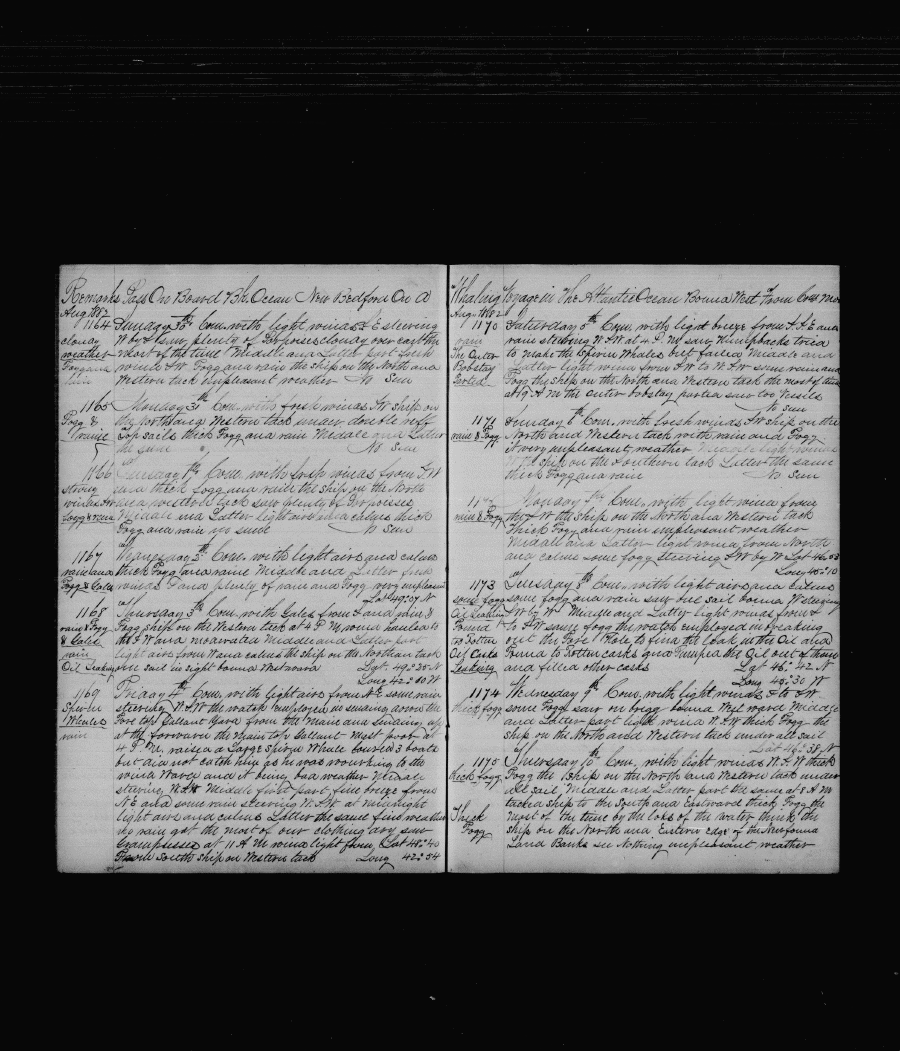 Remarks Pass On Board Bk. Ocean New Bedford On A
Aug 1882
1164 Sunday 30th Com. with light winds S E steering
cloudy W by S saw plenty of Porpoises cloudy over cast the
weather most of the time Middle and Latter part fresh
Fogg and wind SW Fogg and rain the ship on the North and
rain Western tack unpleasant weather No Sun
1165 Monday 31th Com. with fresh winds SW ship on
Fogg & the North and Western tack under double reff
raine Top sails thick Fogg and rain Middle and Latter
the same No Sun
1166 Tuesday 1th Com. with fresh winds from S.W
strong and thick fogg and raine the ship on the North
winds SW and Western tack saw plenty of Porpoises
Fogg & rain Middle and Latter light airs and calms thick
Fogg and rain no sun No Sun
1167 Wednesday 2th Com. with light airs and calms
rain and thick Fogg and raine Middle and Latter fresh
Fogg & Calm winds S and plenty of rain and Fogg very unpleasant
Lat 49:07 N
1168 Thursday 3th Com. with Gales from S and rain &
rain & Fogg Fogg ship on the Western tack at 4 P M wind hauled to
& Gales the S W and moderated Middle and Latter part
rain light airs from W and calms the ship on the Northern tack
Oil Leaking one sail in sight bound Westward Lat. 49:35 N
Long 42:00 W
1169 Friday 4th Com. with light airs from N E some rain
Sperm steering W.S.W the watch employed in sending across the
Whales Fore top Gallant Yard from the Main and sending up
rain at the forward the Main top Gallant mast poot at
4 P.M. raised a Large Sperm Whale lowered 3 boats
but did not catch him as he was working to the
wind Ward and it being bad weather Middle
steering W.S.W Middle first part fine breeze from
N E and some rain steering W.S.W at midnight
light airs and calms Latter the same fine weather
no rain got the most of our clothing dry saw
Grampusses at 11 A M wind light from Lat 48:40
South ship on Western tack Long 42:54
Whaling Voyage in The Atlantic Ocean Bound West from
Aug. 1882
1170 Saturday 5th Com. with light breeze from S.S E and
rain rain steering W.S.W at P.M saw Humpbacks tried
The Outer to make the Sperm Whales but failed Middle and
Bobstay Latter light wind from S W to W.S W some rain and
Parted Fogg the ship on the North and Western tack the most of the
at 9 A M the outer bobstay parted saw two Vessels
No Sun
Sunday 6th Com. with fresh winds S W ship on the
rain & Fogg North and Western tack with rain and Fogg
very unpleasant weather Middle light winds
ship on the Southern tack Latter the same
thick Fogg and rain No Sun
Monday 7th Com. with light wind from
rain & Fogg the ship on the North and Western tack
Thick Fogg and rain unpleasant weather
Middle and Latter light wind from S W
and calms some fogg steering S W by W Lat 46:53
Long 48:10
1173 Tuesday 8th Com. with light airs and calms
some fogg some fogg and rain saw one sail bound W steering
Oil Leaking S W by W Middle and Latter light winds from S
Found to S W some fogg the watch employed in breaking
two Rotten out the Fore Hole to find the leak in the Oil and
Oil Casks Found two Rotten casks and Pumped the Oil out of them
Leaking and filled other casks Lat 46:42 N
Long 49:30 W
1174 Wednesday 9th Com. with light winds S to S W
thick fogg some Fogg saw on brigg bound West ward Middle
and Latter part light wind W.S.W thick Fogg the
ship on the North and Western tack under all sail
Lat 46:58 N
1175 Thursday 10th Com. with light winds W.S.W thick
thick fogg Fogg the Ship on the North and Western tack under
all sail, Middle and Latter part the same at 8 A M
tacked ship to the South and Eastward thick Fogg the
Thick most of the time by the loks of the water think the
Fogg ship on the North and Eastern edge of the Newfound
Land Banks see Nothing unpleasant weather